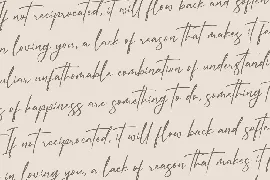 If not reciprocated, it will flow back and soften
in loving you, a lack of reason that makes it fe
culiar, unfathomable combination of understandi
s of happiness are something to do, something t
If not reciprocated, it will flow back and softe
in loving you, a lack of reason that makes it